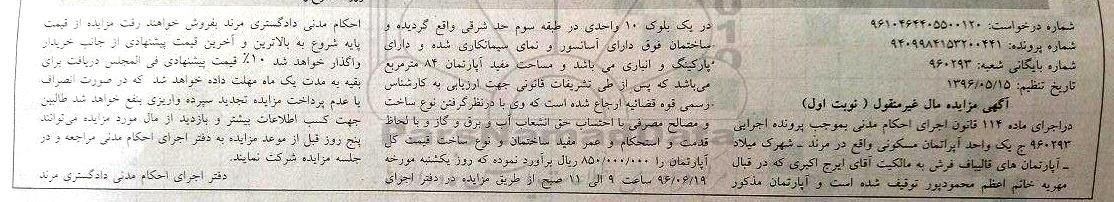 شماره درخواست: ۹۶۱۰۴۶۴۴۰۵۵۰۰۱۲۰
شماره پرونده: ۹۴۰۹۹۸۴۱۵۳۲۰۰۴۴۱
شماره بایگانی شعبه: ۹۶۰۲۹۳
تاریخ تنظیم: ۱۳۹۶/۰۵/۱۵
آگهی مزایده مال غیرمنقول ( نوبت اول)
دراجرای ماده ۱۱۴ قانون اجرای احکام مدنی بموجب پرونده اجرایی
۹۶۰۲۹۳ ج یک واحد آپراتمان مسکونی واقع در مرند ــ شهرک میلاد
ــ آپارتمان های قالیباف فرش به مالکیت آقای ایرج اکبری که در قبال
مهریه خانم اعظم محمودپور توقیف شده است و آپارتمان مذکور
در یک بلوک ۱۰ واحدی در طبقه سوم حد شرقی واقع گردیده و
ساختمان فوق دارای آسانسور و نمای سیمانکاری شده و دارای
پارکینگ و انباری می باشد و مساحت مفید آپارتمان ۸۴ مترمربع
می‌باشد که پس از طی تشریفات قانونی جهت ارزیابی به کارشناس
رسمی قوه قضائیه ارجاع شده است که وی با درنظرگرفتن نوع ساخت
و مصالح مصرفی با احتساب حق انشعاب آب و برق و گاز و با لحاظ
قدمت و استحکام و عمر مفید ساختمان و نوع ساخت قیمت کل
آپارتمان را ۸۵۰/۰۰۰/۰۰۰ ریال برآورد نموده که روز یکشنبه مورخه
۹۶/۰۶/۱۹ ساعت ۹ الی ۱۱ صبح از طریق مزایده در دفتر اجرای
احکام مدنی دادگستری مرند بفروش خواهند رفت مزایده از قیمت
پایه شروع به بالاترین و آخرین قیمت پیشنهادی از جانب خریدار
واگذار خواهد شد ۱۰٪ قیمت پیشنهادی فی المجلس دریافت برای
بقیه به مدت یک ماه مهلت داده خواهد شد که در صورت انصراف
یا عدم پرداخت مزایده تجدید سپرده واریزی بنفع خواهد شد طالبین
جهت کسب اطلاعات بیشتر و بازدید از مال مورد مزایده می‌توانند
پنج روز قبل از موعد مزایده به دفتر اجرای احکام مدنی مراجعه و در
جلسه مزایده شرکت نمایند.
دفتر اجرای احکام مدنی دادگستری مرند